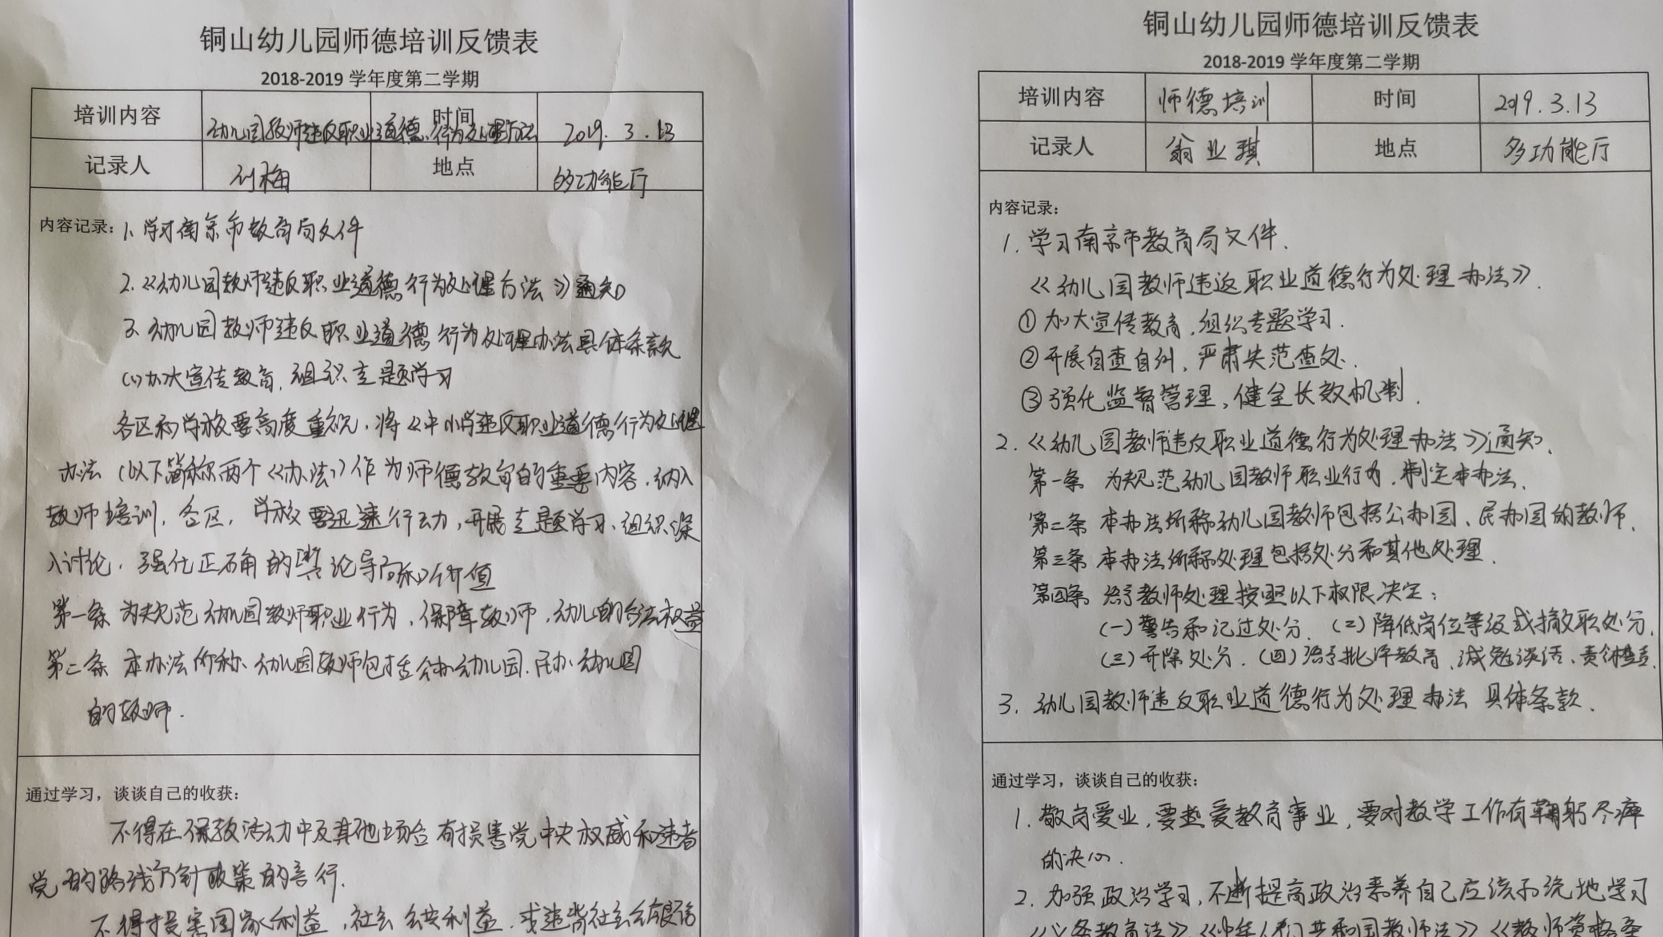 铜山幼儿园师德培训反馈表
2018-2019 学年度第二学期
培训内容 幼儿园教师违反职业道德行为处理办法 时间 2019.3.13
记录人 刘梅 地点 多功能厅
内容记录: 1、学习南京市教育局文件
2.《幼儿园教师违反职业道德行为处理办法》通知
3. 幼儿园教师违反职业道德行为处理办法具体条款
(1)加大宣传教育,组织专题学习
各区和学校要高度重视,将《中小学违反职业道德行为处理
办法(以下简称两个《办法》)作为师德教育的重要内容,纳入
教师培训,各区,学校要迅速行动,开展专题学习,组织深
入讨论,强化正确的舆论导向和价值
第一条 为规范幼儿园教师职业行为,保障教师,幼儿的合法权益
第二条 本办法所称幼儿园教师包括公办幼儿园.民办幼儿园
的教师.
通过学习,谈谈自己的收获:
不得在保教活动中及其他场合有损害党中央权威和违背
党的路线方针政策的言行.
不得损害国家利益,社会公共利益.或违背社会公序良俗
铜山幼儿园师德培训反馈表
2018-2019 学年度第二学期
培训内容 师德培训 时间 2019.3.13
记录人 翁业琪 地点 多功能厅
内容记录:
1. 学习南京市教育局文件.
《幼儿园教师违返职业道德行为处理办法》.
① 加大宣传教育,组织专题学习.
② 开展自查自纠,严肃失范查处.
③ 强化监督管理、健全长效机制.
2.《幼儿园教师违反职业道德行为处理办法》通知.
第一条 为规范幼儿园教师职业行为,制定本办法.
第二条 本办法所称幼儿园教师包括公办园、民办园的教师.
第三条 本办法所称处理包括处分和其他处理.
第四条 给予教师处理按照以下权限决定:
(一)警告和记过处分.(二)降低岗位等级或撤职处分.
(三)开除处分.(四)给予批评教育、诫勉谈话、责令检查.
3. 幼儿园教师违反职业道德行为处理办法 具体条款.
通过学习,谈谈自己的收获:
1. 敬岗爱业,要热爱教育事业,要对教学工作有鞠躬尽瘁
的决心.
2. 加强政治学习,不断提高政治素养自己应该系统地学习
《义务教育法》《中华人们共和国教师法》《教师资格条